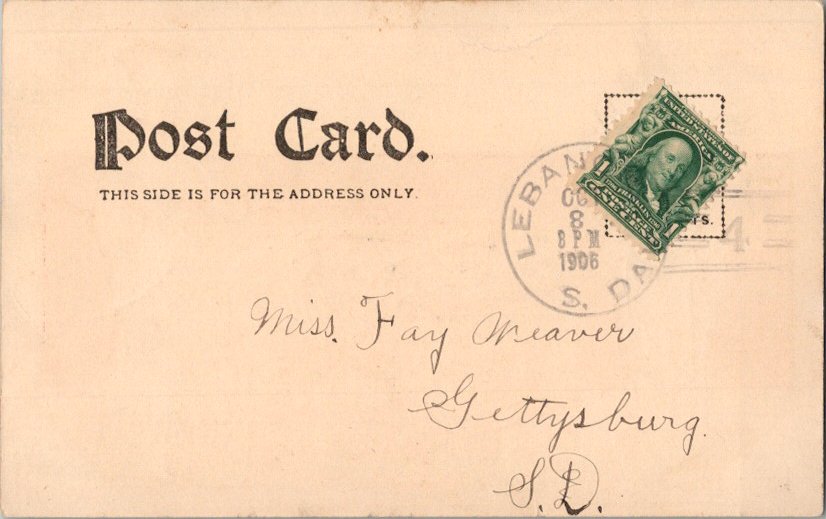 Post Card.
THIS SIDE IS FOR THE ADDRESS ONLY.
LEBANO
OC
8
8 PM
1906
S. DA
4
UNITED STATES OF
AMERICA
1 1
FRANKLIN
ONE CENT
TS.
Miss. Fay Weaver
Gettysburg.
S.D.